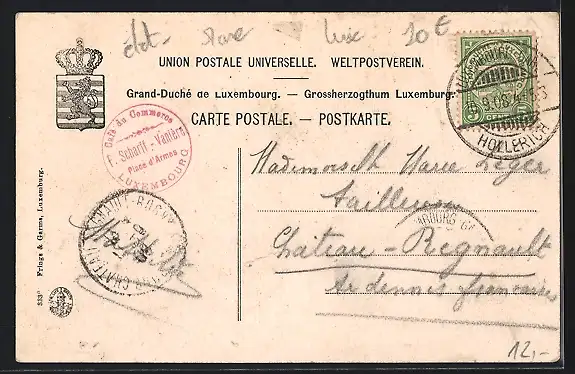 état - rare luxe 10 €
UNION POSTALE UNIVERSELLE. WELTPOSTVEREIN.
Grand-Duché de Luxembourg. — Grossherzogthum Luxemburg.
CARTE POSTALE. — POSTKARTE.
Café du Commerce
Scharff-Vanière
Place d'Armes
LUXEMBOURG
5 CENTIMES 5
HOLLERICH
Mademoiselle Marie Léger
Tailleuse
Château-Regnault
Ardennes françaises
333° Frings & Garms, Luxemburg.
12,-